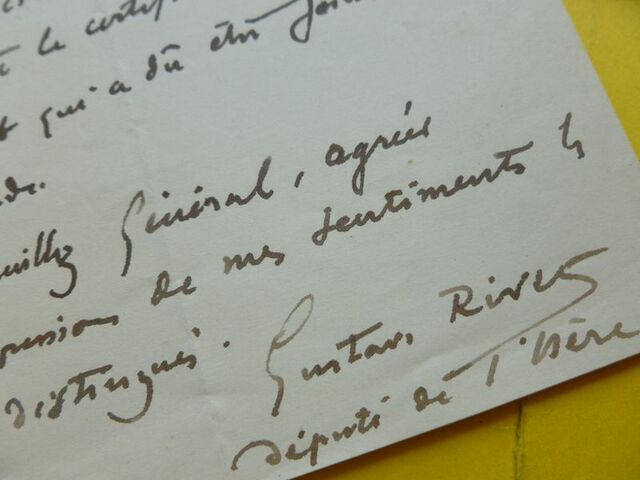 le certif
qui a dû être join
uillez Général, agréer
pression de mes sentiments le
distingués. Gustave Rivet
député de l'Isère